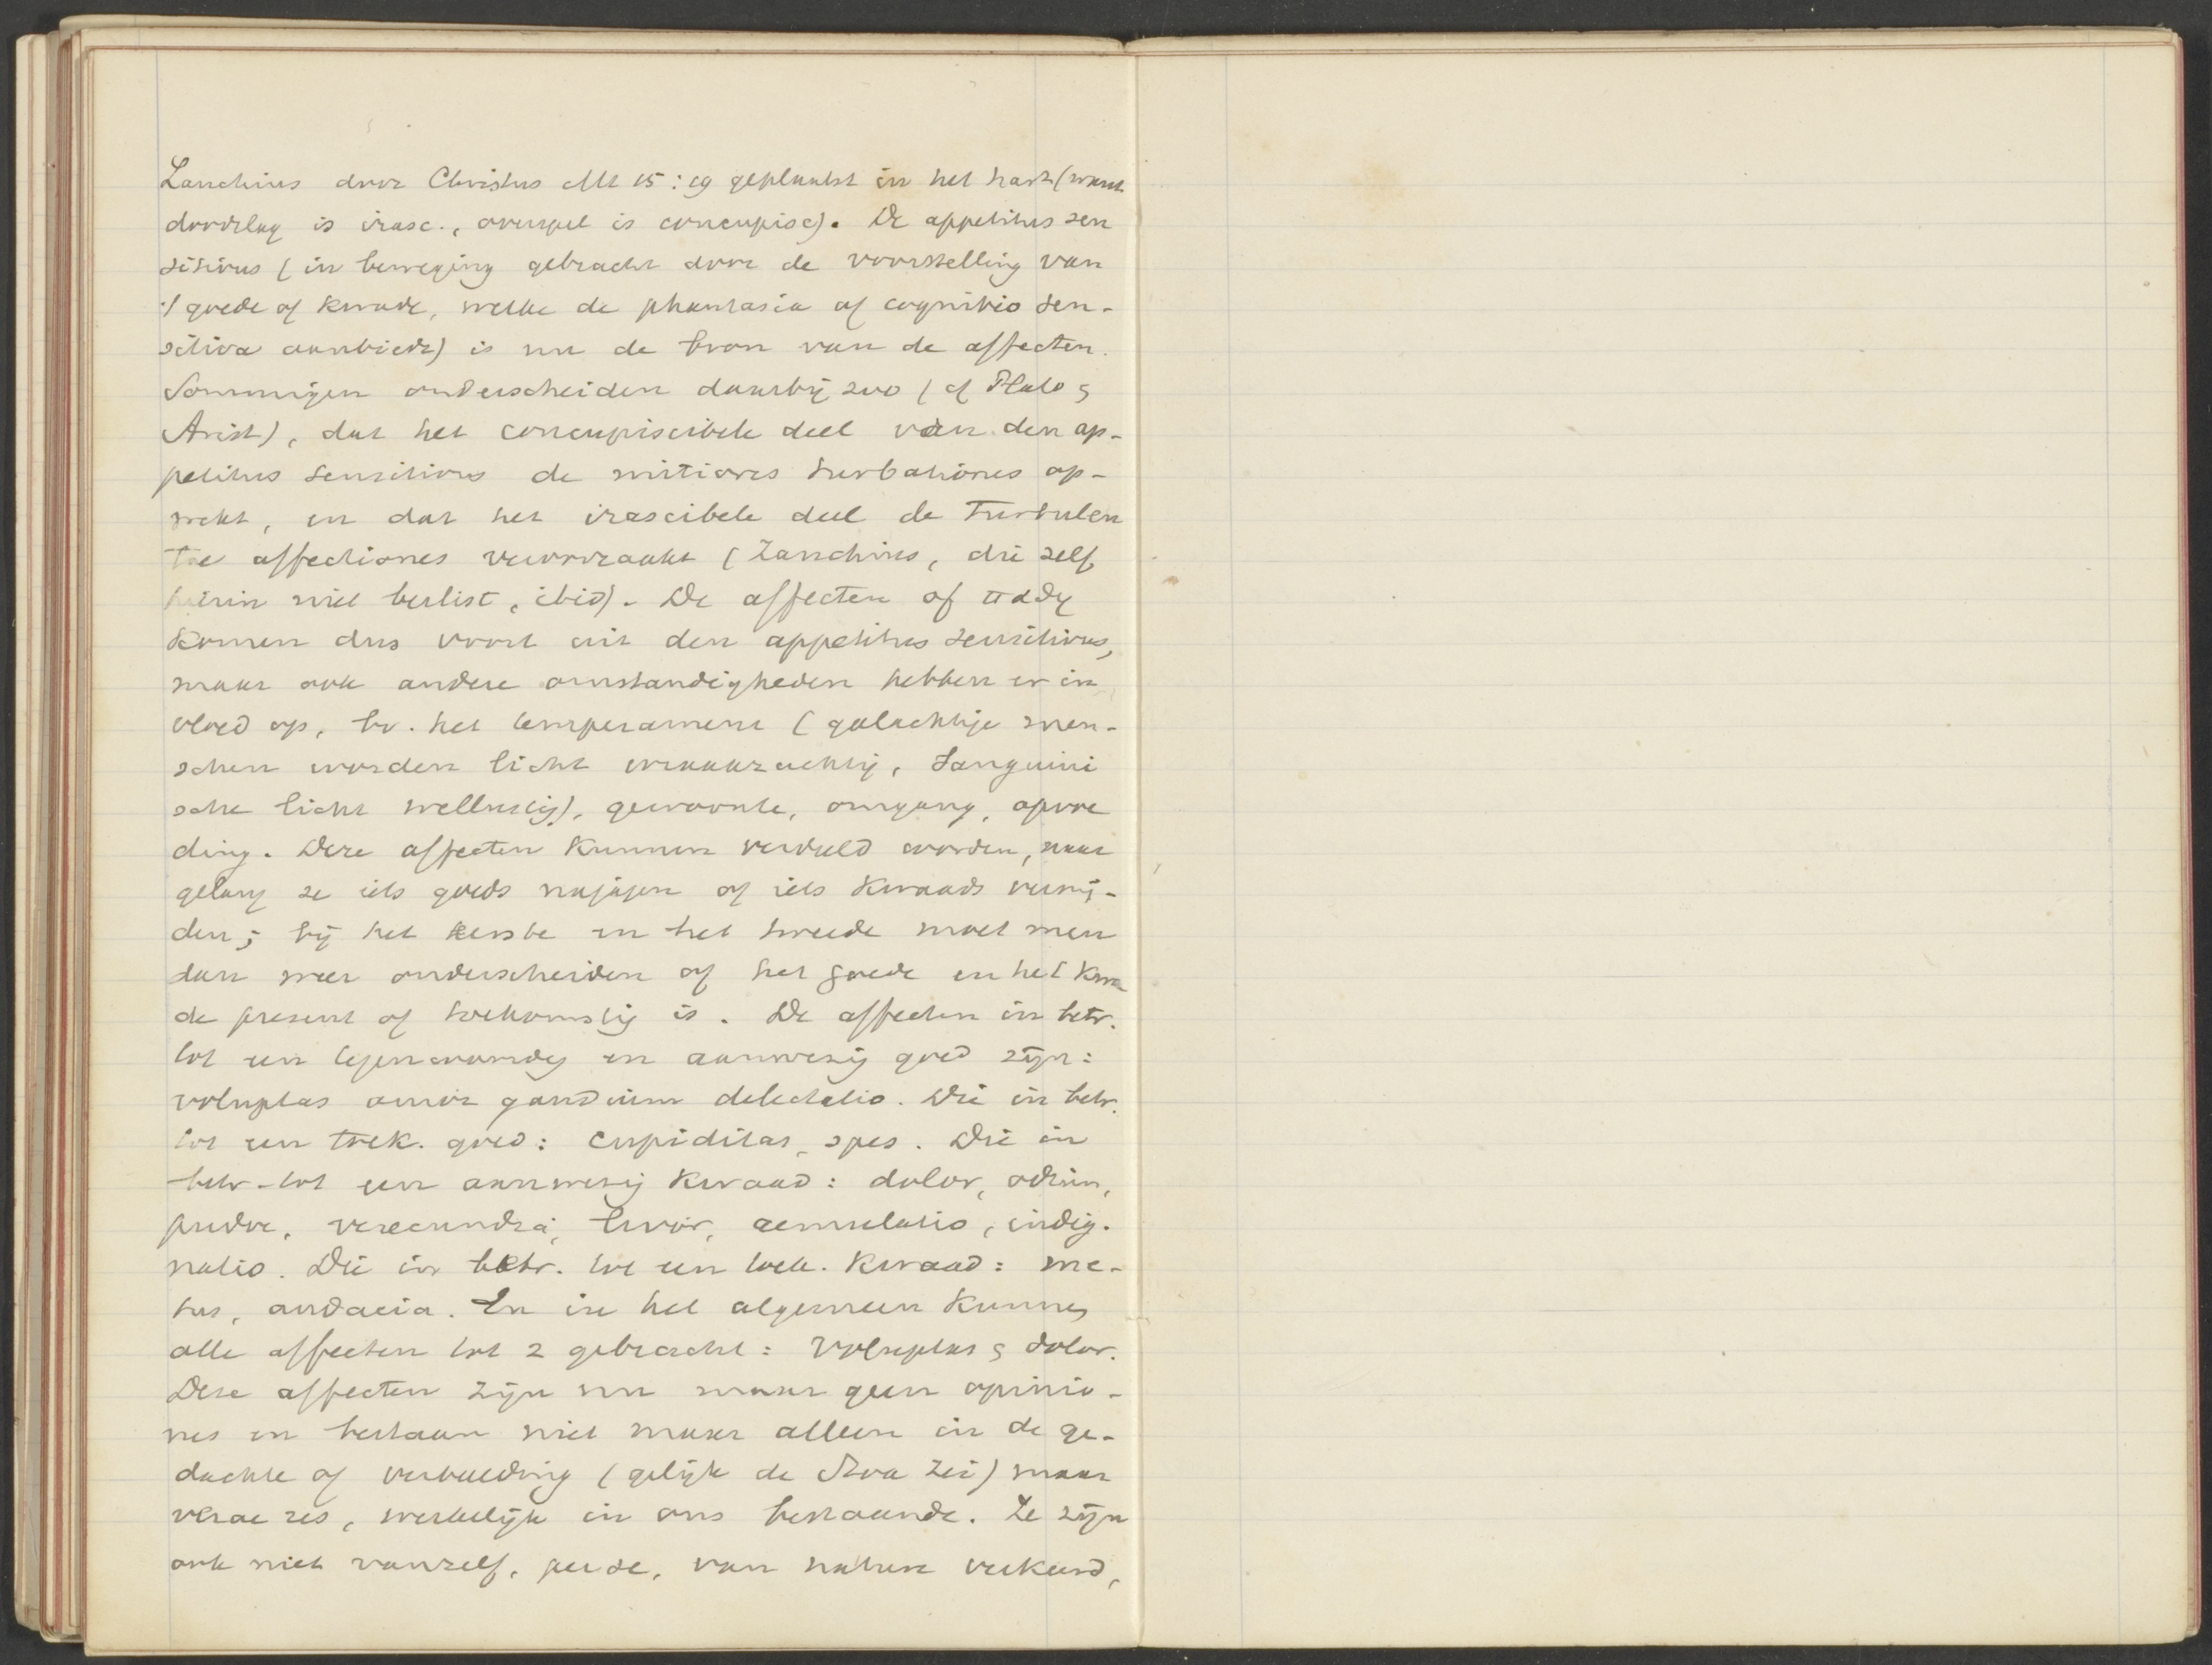 Zanchius door Christus Mt 15:19 geplaatst in het hart (want
doodslag is irasc., overspel is concupisc). De appetitus sen
sitivus (in beweging gebracht door de voorstelling van
't goede of kwade, welke de phantasia of cognitio sen-
sitiva aanbiedt) is nu de bron van de affecten.
Sommigen onderscheiden daarbij zoo (cf Plato &
Arist), dat het concupiscibele deel van den ap-
petitus sensitivus de mitiores turbationes op-
wekt, en dat het irascibele deel de turbulen
tae affectiones veroorzaakt (Zanchius, die zelf
hierin niet beslist, ibid). De affecten of παθη
komen dus voort uit den appetitus sensitivus,
maar ook andere omstandigheden hebben er in
vloed op, bv. het temperament (galachtige men-
schen worden licht wraakzuchtig, sanguini
sche licht wellustig), gewoonte, omgang, opvoe
ding. Deze affecten kunnen verdeeld worden, naar
gelang ze iets goeds najagen of iets kwaads vermij-
den; bij het eerste en het tweede moet men
dan weer onderscheiden of het goede en het kwa
de present of toekomstig is. De affecten in betr.
tot een tegenwoordig en aanwezig goed zijn:
voluptas amor gaudium delectatio. Die in betr.
tot een toek. goed: cupiditas, spes. Die in
betr. tot een aanwezig kwaad: dolor, odium,
pudor, verecundia, livor, aemulatio, indig-
natio. Die in betr. tot een toek. kwaad: me-
tus, audacia. En in het algemeen kunnen
alle affecten tot 2 gebracht: Voluptas & dolor.
Deze affecten zijn nu maar geen opinio-
nes en bestaan niet maar alleen in de ge-
dachte of verbeelding (gelijk de Stoa zei) maar
verae res, werkelijk in ons bestaande. Ze zijn
ook niet vanzelf, per se, van nature verkeerd,